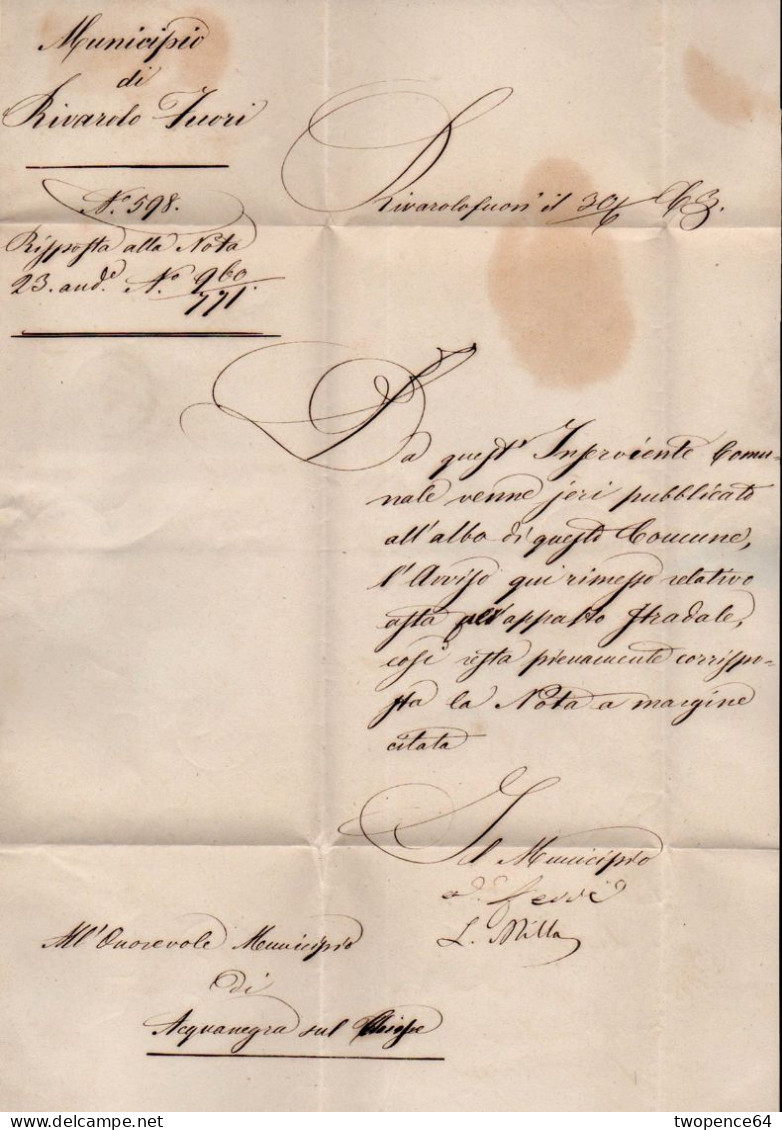 Municipio
di
Rivarolo Fuori
N.° 598.
Risposta alla Nota
23. and.e N.° 960/771.
Rivarolofuori il 63.
Da quest' Inserviente Comu-
nale venne jeri pubblicato
all'albo di questo Comune,
l'Avviso qui rimesso relativo
asta per appalto stradale,
così resta pienamente corrispo-
sta la Nota a margine
citata
Il Municipio
All'Onorevole Municipio
di
Acquanegra sul Chiese
twopence64